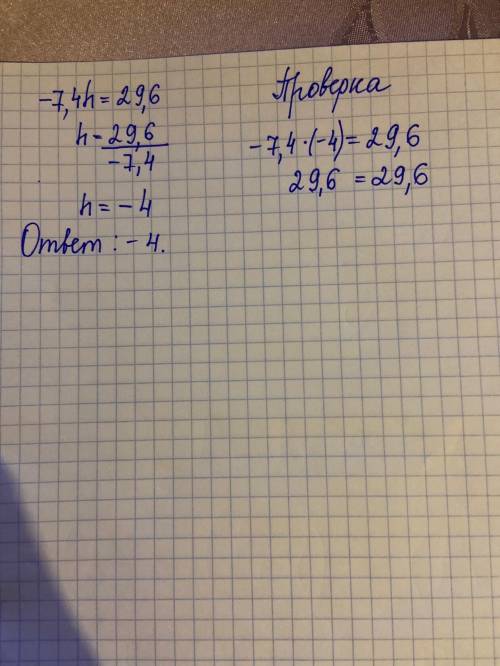 -7,4h = 29,6
h = 29,6
-7,4
h = -4
Ответ: -4.
Проверка
-7,4·(-4) = 29,6
29,6 = 29,6